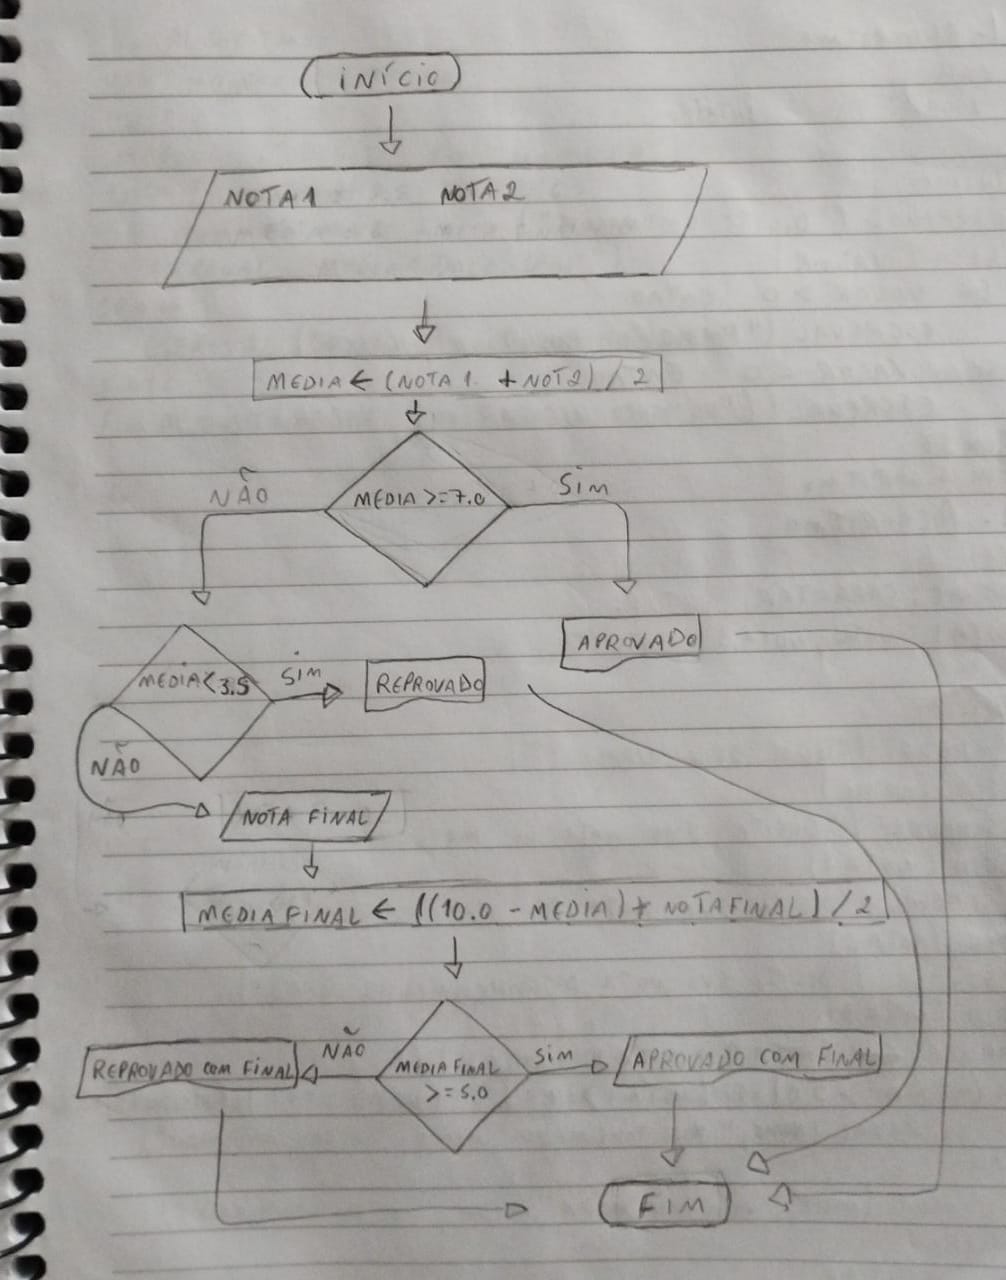 INÍCIO
NOTA1 NOTA2
MEDIA ← (NOTA1 + NOT2) / 2
NÃO MEDIA >= 7.0 SIM
APROVADO
MEDIA < 3.5 SIM REPROVADO
NÃO
NOTA FINAL
MEDIA FINAL ← ((10.0 - MEDIA) + NOTAFINAL) / 2
REPROVADO COM FINAL NÃO MEDIA FINAL SIM APROVADO COM FINAL
>= 5.0
FIM